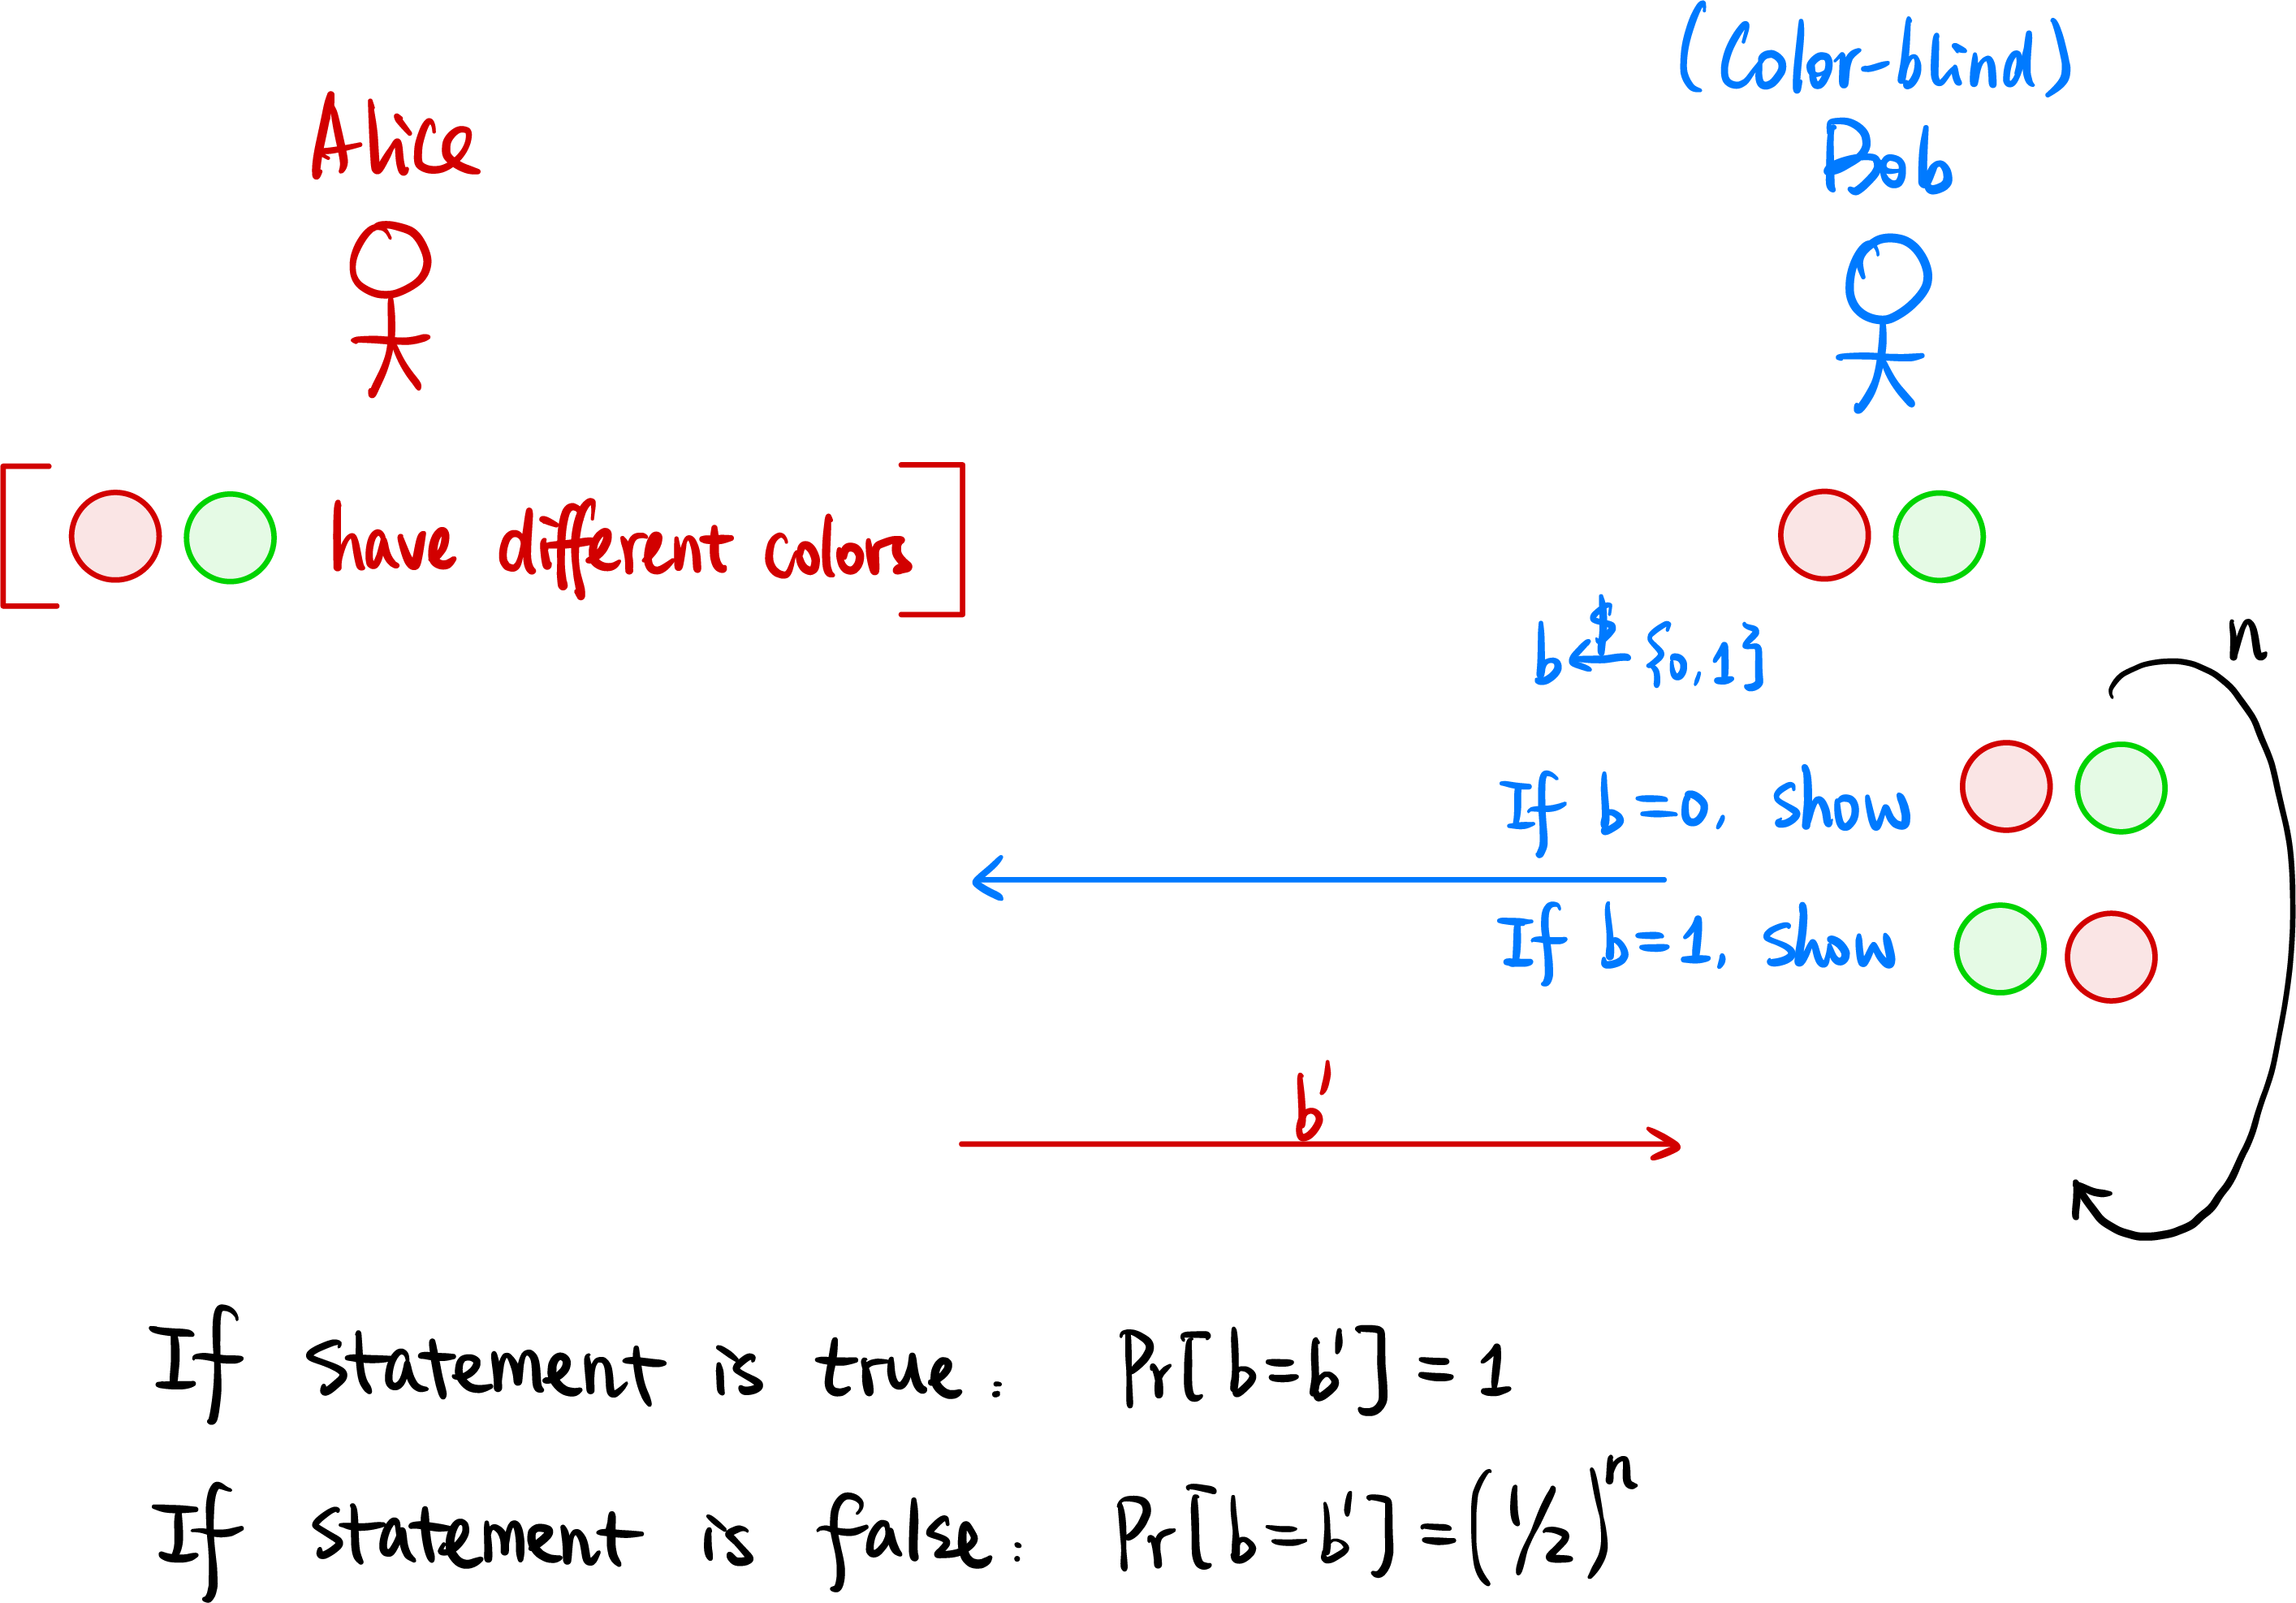 Alice
(Color-blind)
Bob
[ have different colors ]
b ←$ {0,1}
n
If b=0, show
If b=1, show
b'
If statement is true: Pr[b=b']=1
If statement is false: Pr[b=b']=(1/2)ⁿ